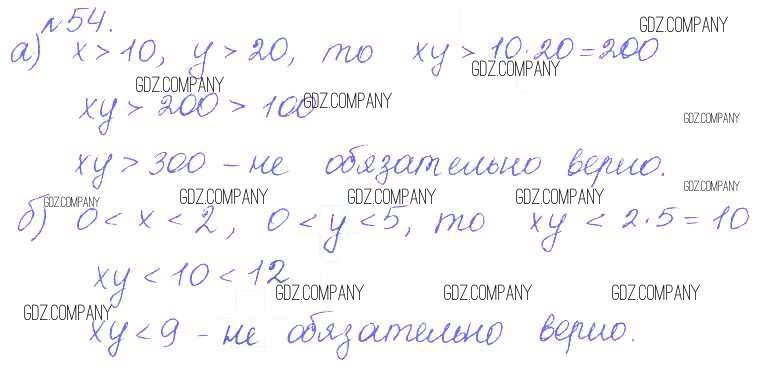 №54.
GDZ.COMPANY
а) x > 10, y > 20, то xy > 10·20 = 200
GDZ.COMPANY
GDZ.COMPANY GDZ.COMPANY
xy > 200 > 100
GDZ.COMPANY
xy > 300 – не обязательно верно.
GDZ.COMPANY GDZ.COMPANY GDZ.COMPANY GDZ.COMPANY GDZ.COMPANY
б) 0 < x < 2, 0 < y < 5, то xy < 2·5 = 10
xy < 10 < 12
GDZ.COMPANY GDZ.COMPANY GDZ.COMPANY
GDZ.COMPANY
xy < 9 – не обязательно верно.